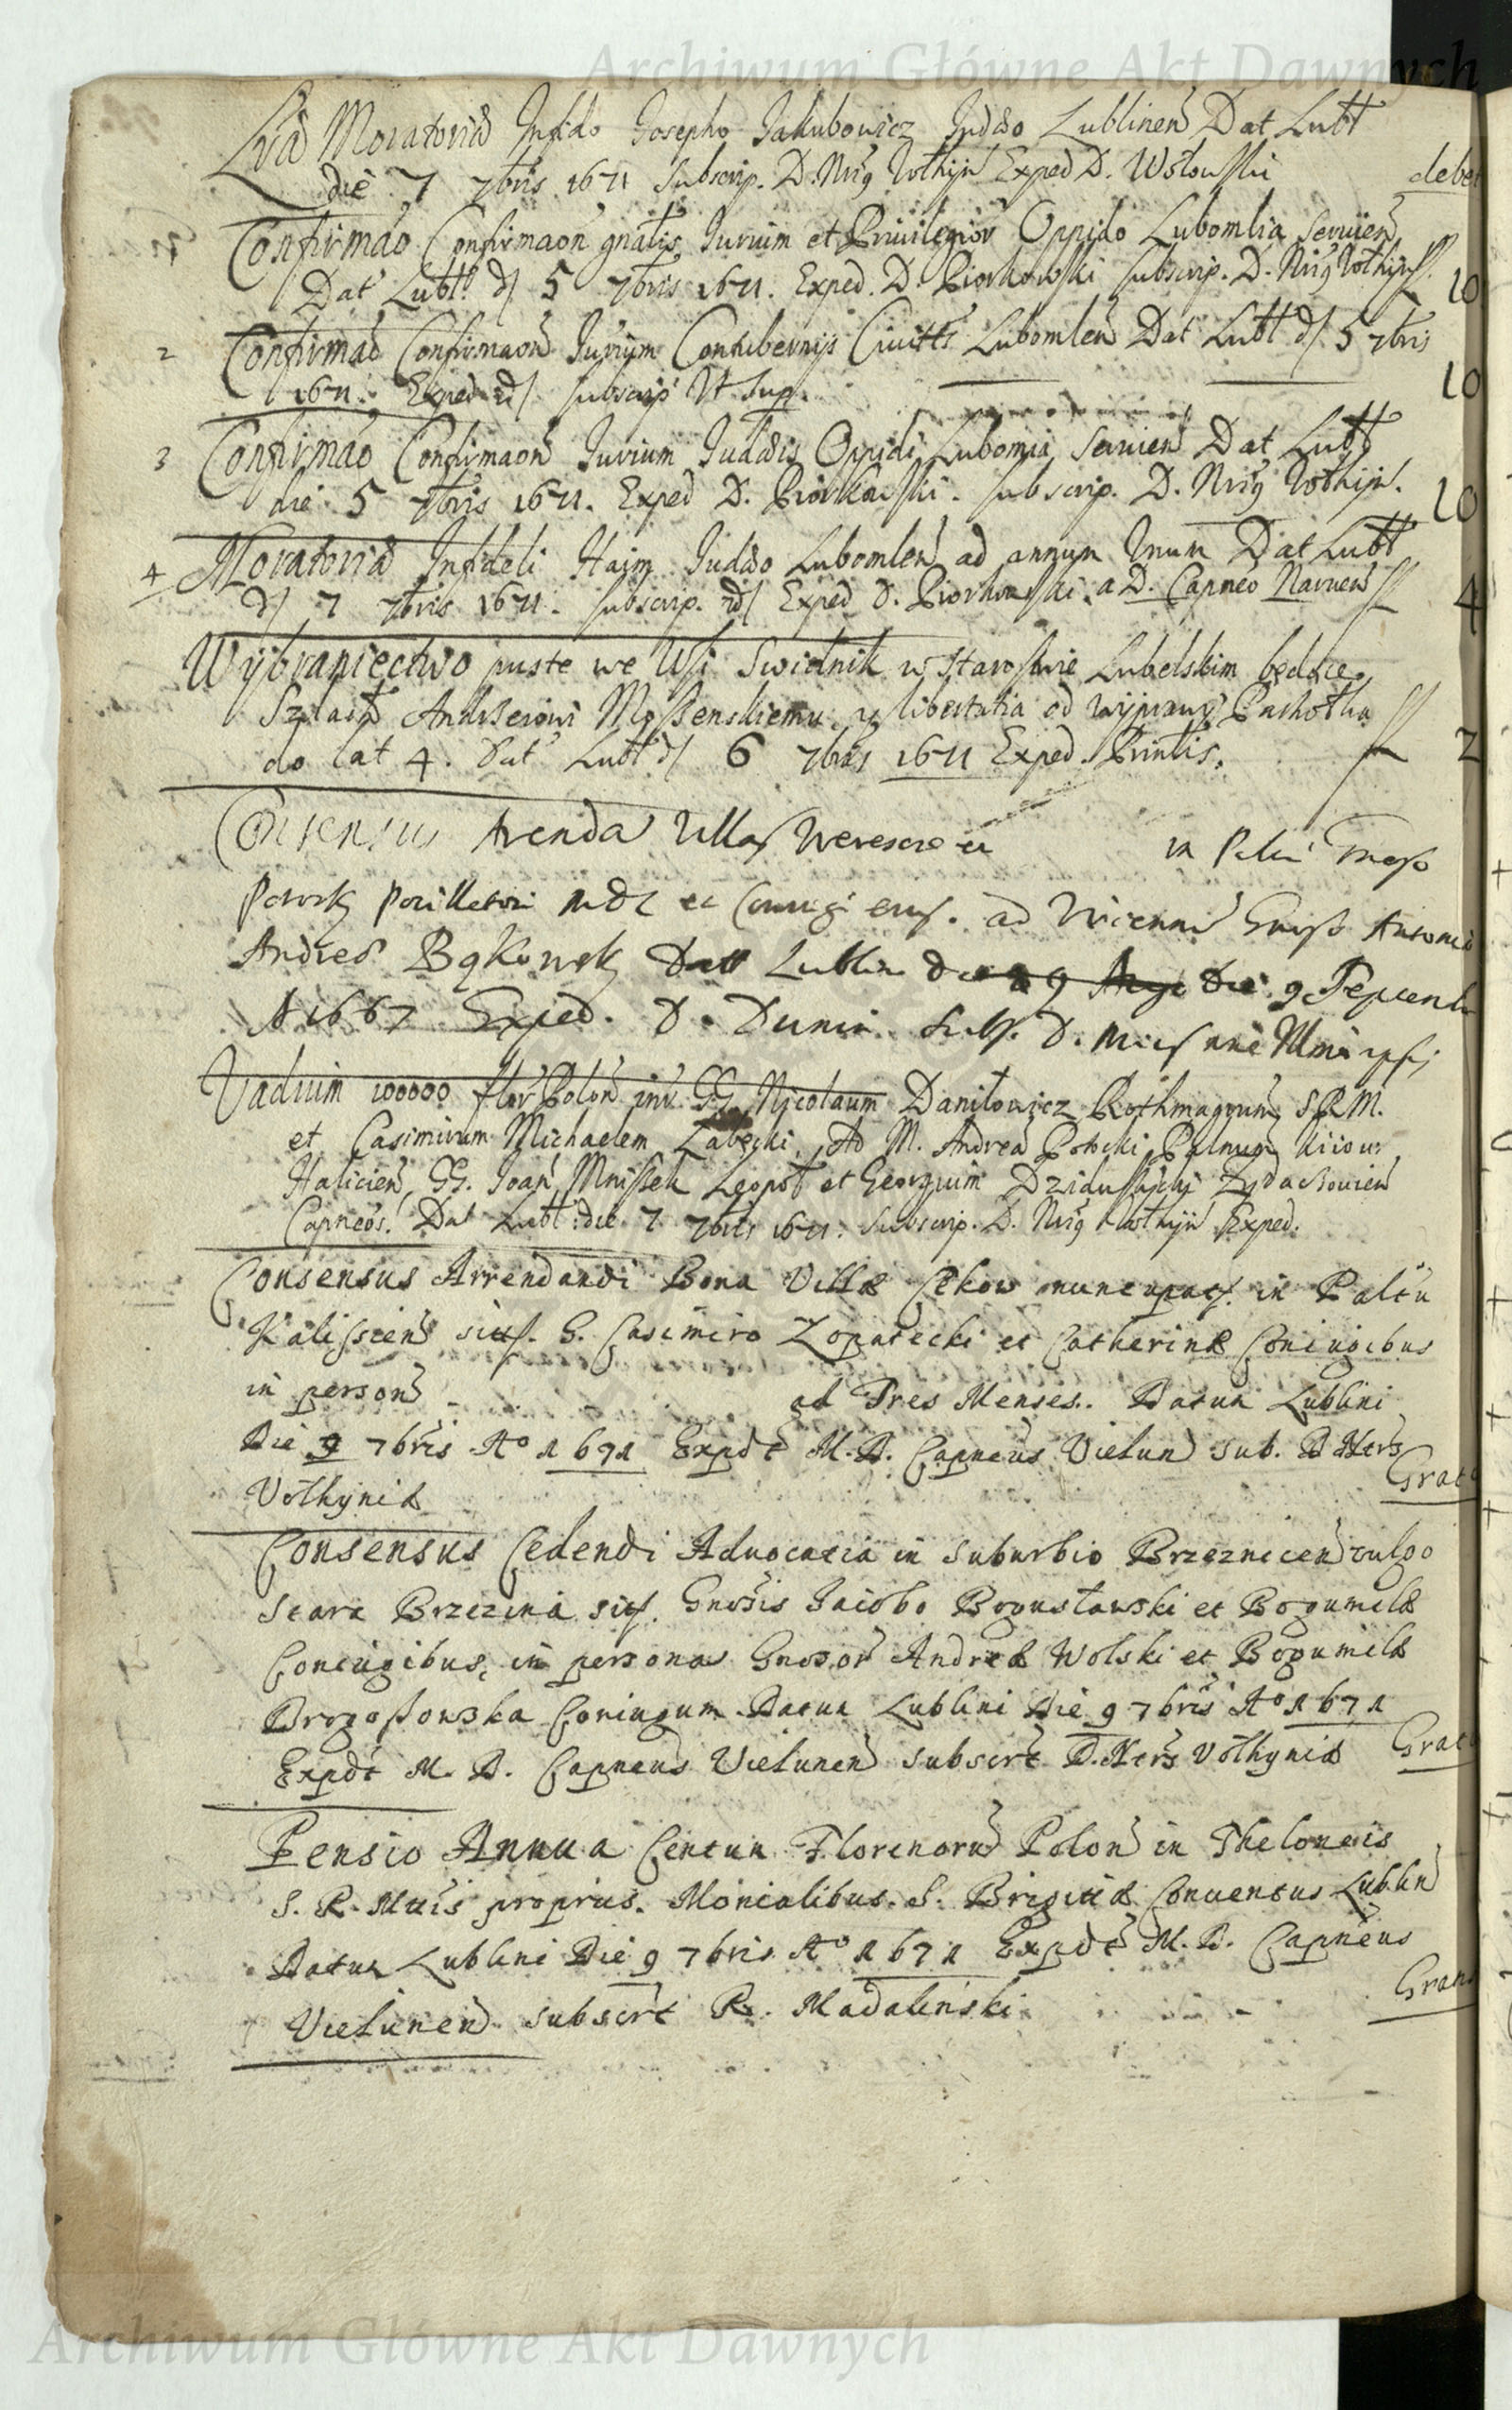 Archiwum Główne Akt Dawnych
Lrae Moratoriae Infido Josepho Jakubowicz Judaeo Lublinen Dat Lubl
die 7 7bris 1671 Subscrip. D. Nrg Wolhijn Exped D. Wolowski debet
1 Confirmao Confirmaon gnalis Jurium et Priuilegior Oppido Lubomlia seruien
Dat Lubl. d 5 7bris 1671. Exped. D. Piorkowski subscrip. D. Nrig Wolhijn fl. 10
2 Confirmao Confirmaon Jurium Contubernijs Ciuitts Lubomlen Dat Lubl d 5 7bris
1671. Exped id subscrip Ut Sup. 10
3 Confirmao Confirmaon Jurium Judaeis Oppidi Lubomia seruien Dat Lubl
die 5 7bris 1671. Exped D. Piorkowski. subscrip. D. Nrig Wolhijn. 10
4 Moratoriae Infideli Haim Judaeo Lubomlen ad annum Unum Dat Lubl
d 7 7bris 1671. subscrip. id Exped D. Piorkowski a D. Capneo Naruen fl 4
Wybraniectwo puste we Wsi Swidnik w Starostwie Lubelskim będące
Szlacht Andrzeiowi Myszenskiemu z libertatia od wyprawy Pachołka
do lat 4. Dat Lubl d 6 7bris 1671 Exped. Printis. fl 2
Consensus Arendae Villae Weresce in Pltu
Potock Pocillatori et Coniugi eius. ad Triennium Gnoso Antonio
Andreae Bąkowsk Datt Lublin die 9 Septemb
A 1667 Exped. D. Dunin Subs. D.
Vadium 100000 flor Polon int GG Nicolaum Daniłowicz Rothmagrum S R M.
et Casimirum Michaelem Zabecki, Ad M. Andrea Potocki Palnum Kiiou:
Halicien, GG. Joan Mniszek Leopol et Georgium Dzidussycki Zydaczouien
Capneos. Dat Lubl: die 7 7bris 1671. Subscrip. D. Nrig Wolhijn Exped.
Consensus Arrendandi Bona Villae Cekow nuncupat. in Paltu
Kaliscien sitt. G. Casimiro Zopatecki et Catherinae Coniugibus
in person ad Tres Menses. Datum Lublini
Die 9 7bris Ao 1671 Expdt M. D. Capneus Vielun sub. D Nters
Volhyniae Grat
Consensus Cedendi Aduocatia in suburbio Brzeznicen vulgo
Stara Brzezina sitt. Gnosis Jacobo Bogusławski et Bogumilae
Coniugibus, in persona Gnosor Andreae Wolski et Bogumilae
Drogoszowska Coniugum. Datum Lublini Die 9 7bris Ao 1671
Expdt M. D. Capneus Vielunen subscrt D. Nters Volhyniae Grat
Pensio Annua Centum Florenorum Polon in Theloneis
S. R. Mttis proprius. Monialibus. S. Brigittae Conuentus Lublin
Datum Lublini Die 9 7bris Ao 1671 Expdt M. D. Capneus
Vielunen subscrt R. Madalenski Gratis
Archiwum Główne Akt Dawnych